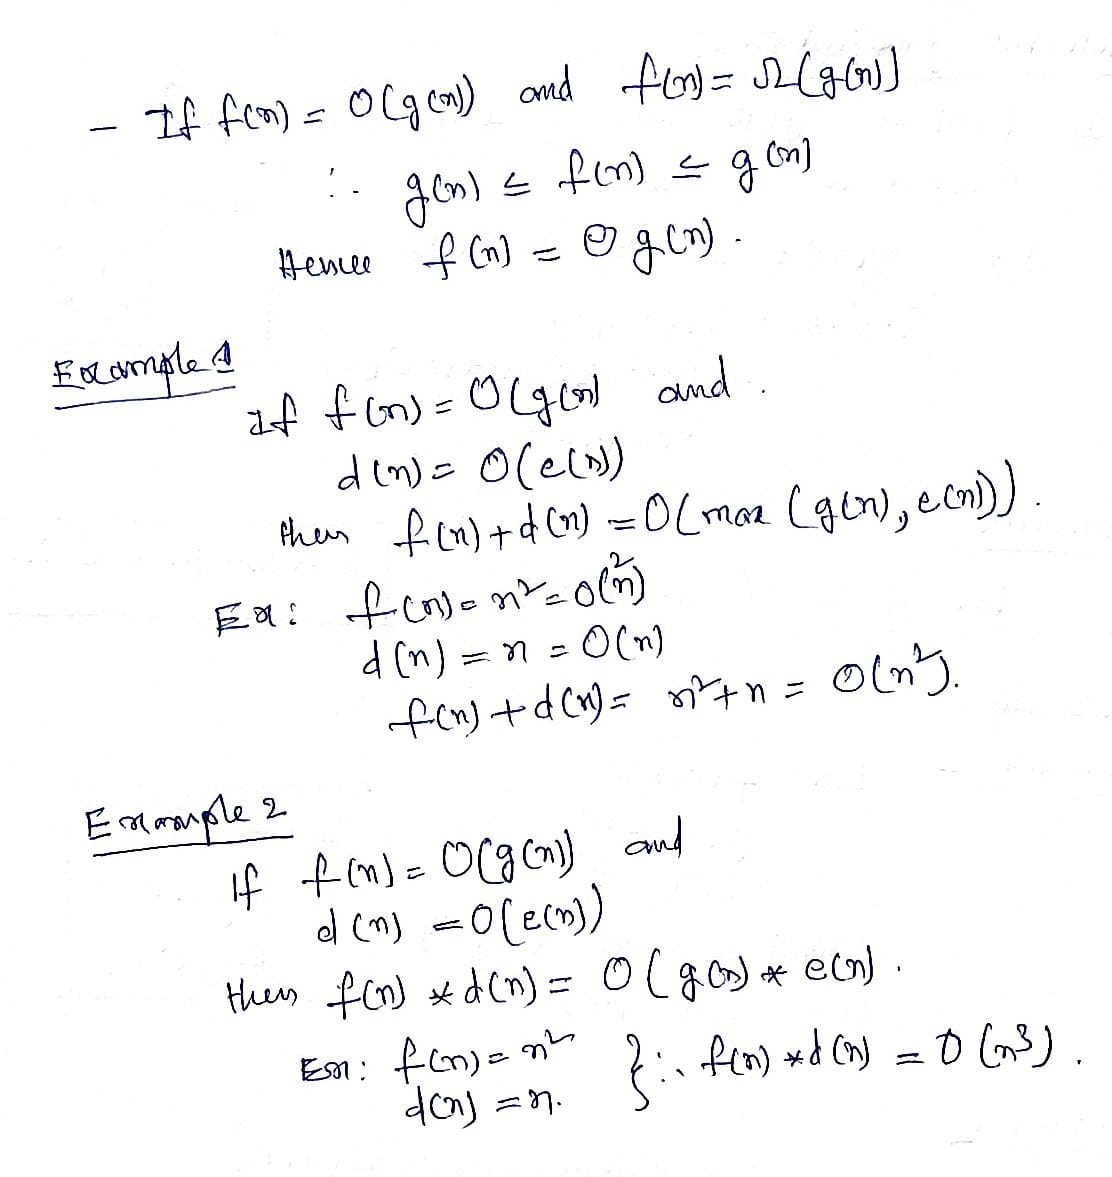 - If f(n) = O(g(n)) and f(n) = Ω(g(n))
∴ g(n) ≤ f(n) ≤ g(n)
Hence f(n) = Θ g(n).
Example 1
If f(n) = O(g(n) and .
d(n) = O(e(n))
then f(n) + d(n) = O(max (g(n), e(n))).
Ex: f(n) = n² = O(n²)
d(n) = n = O(n)
f(n) + d(n) = n² + n = O(n²).
Example 2
If f(n) = O(g(n)) and
d(n) = O(e(n))
then f(n) * d(n) = O(g(n) * e(n).
Ex: f(n) = n² } ∴ f(n) * d(n) = O(n³).
d(n) = n.